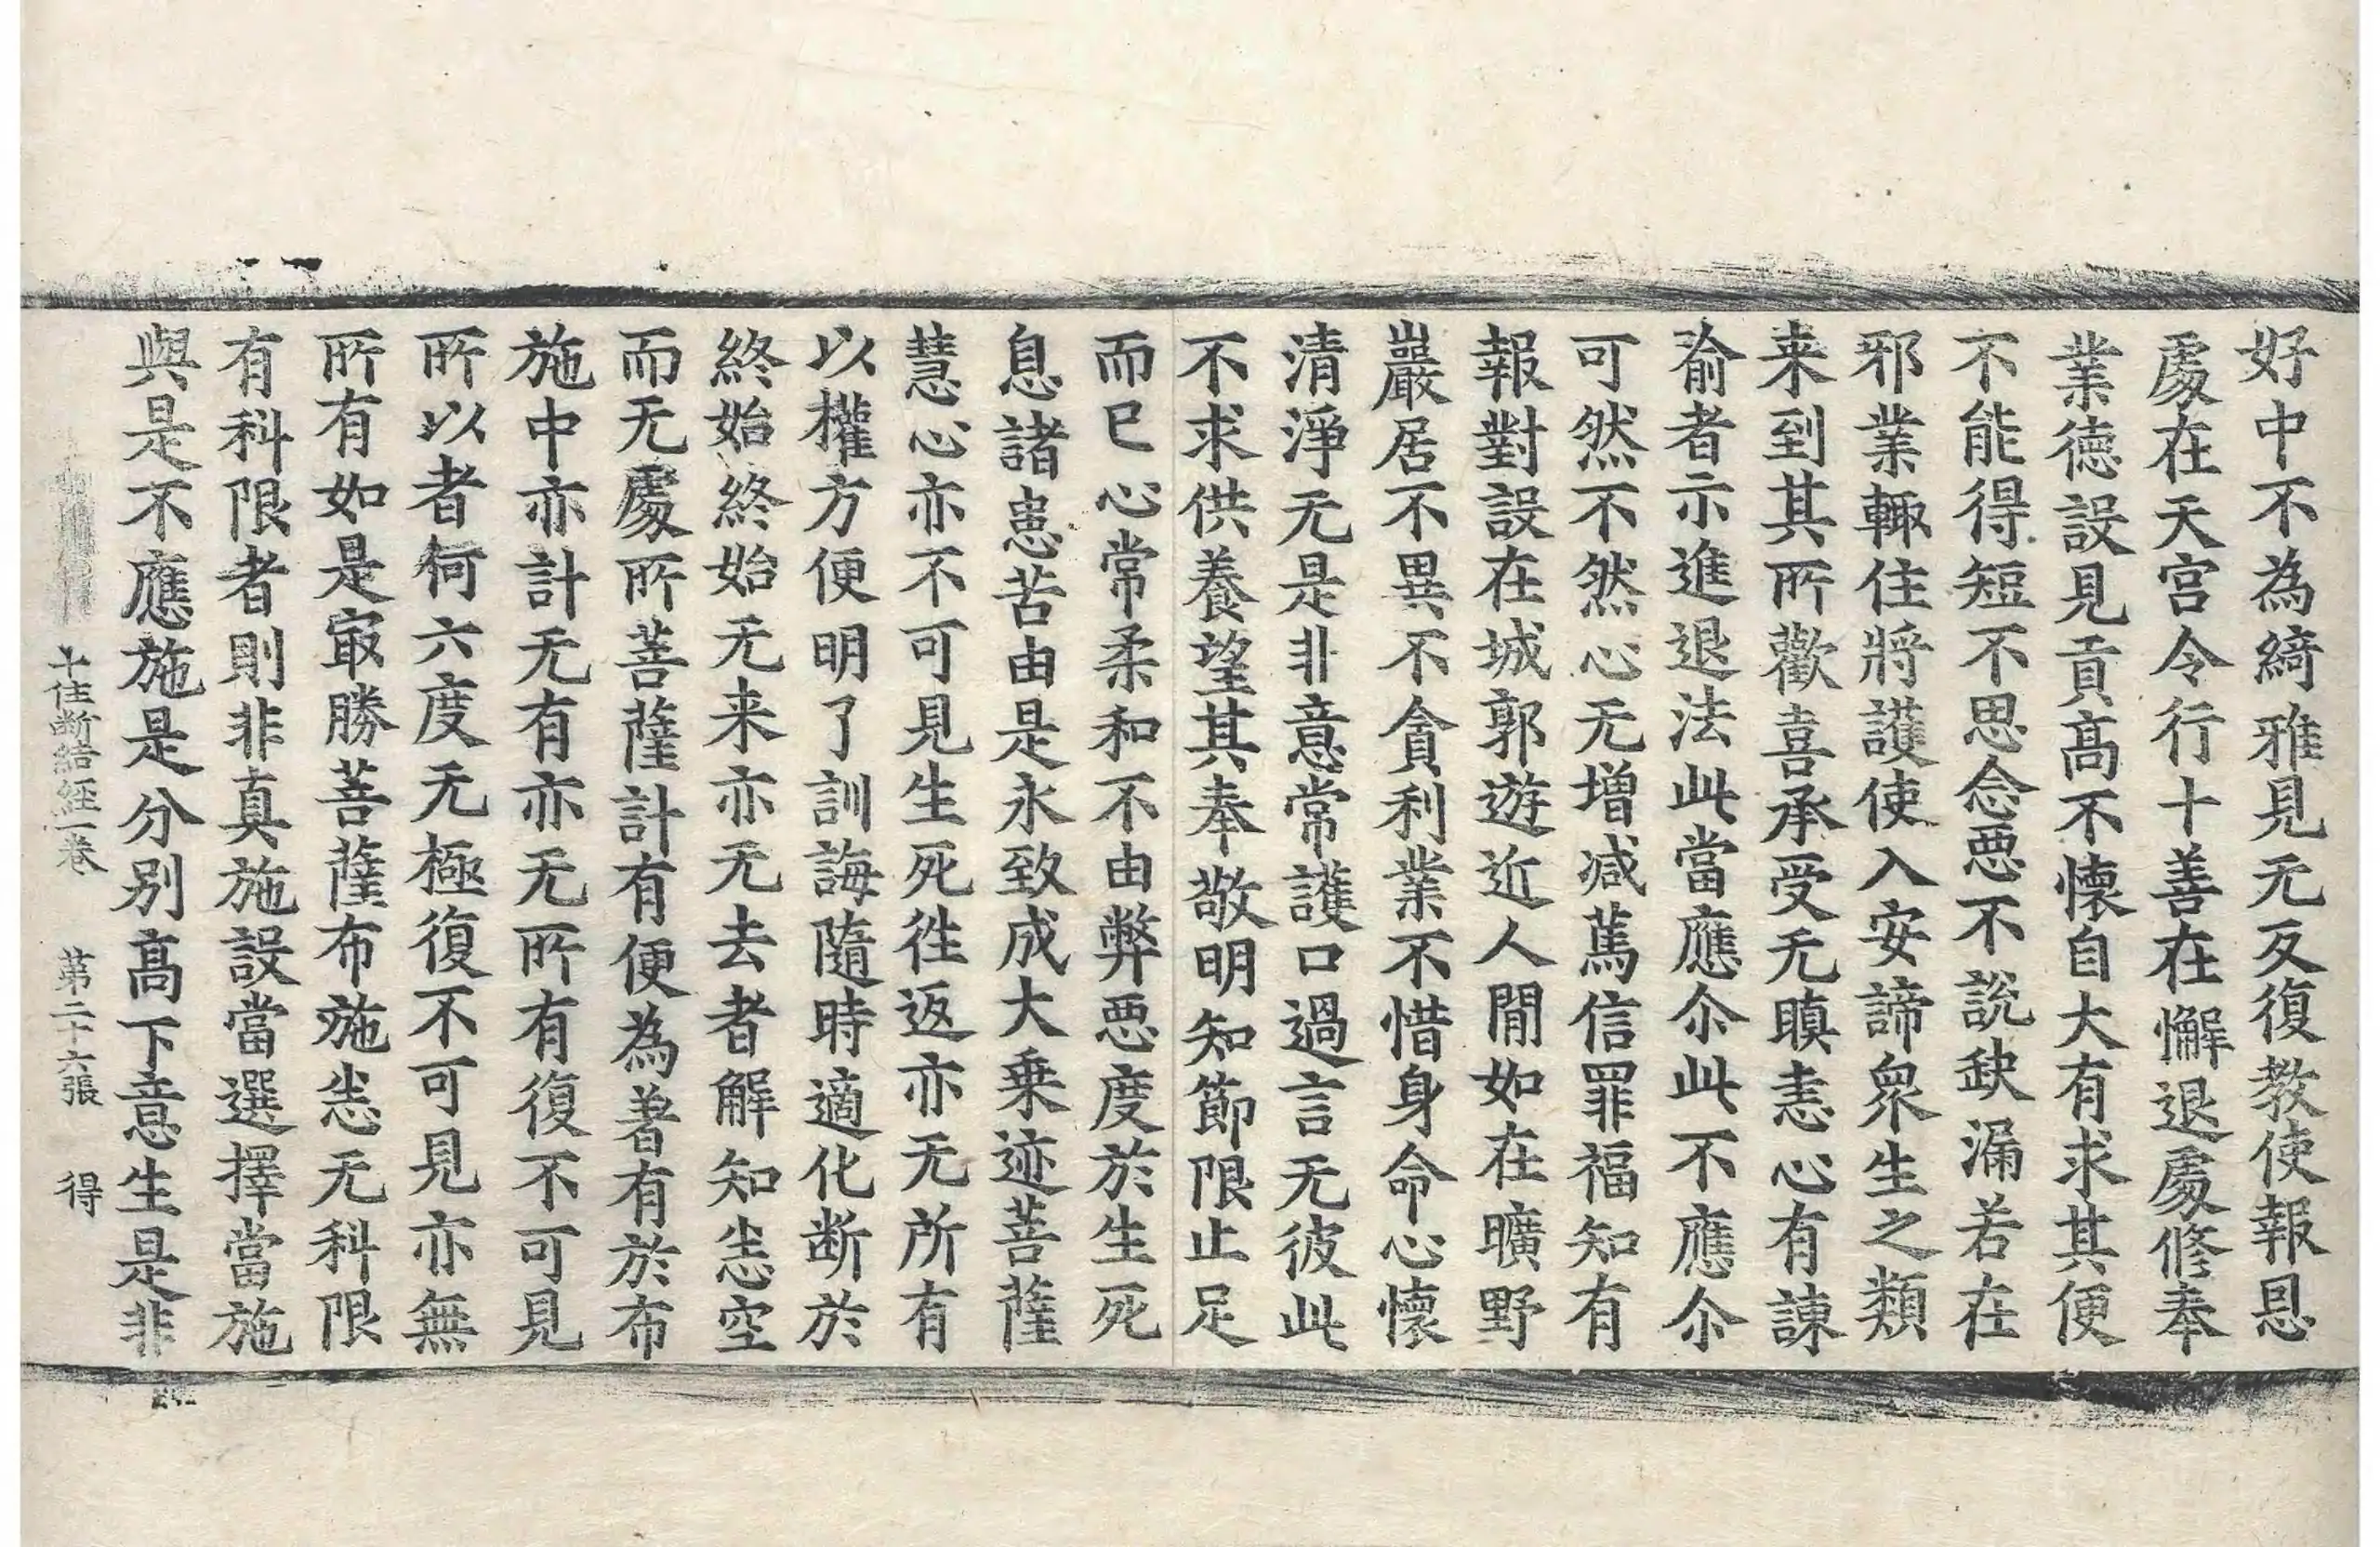 好中不為綺雅見无反復教使報恩
處在天宮令行十善在懈退處修奉
業德設見貢高不懷自大有求其便
不能得短不思念惡不說缺漏若在
邪業輙住將護使入安諦衆生之類
来到其所歡喜承受无瞋恚心有諫
喻者示進退法此當應尒此不應尒
可然不然心无增減篤信罪福知有
報對設在城郭遊近人間如在曠野
巖居不異不貪利業不惜身命心懷
清淨无是非意常護口過言无彼此
不求供養望其奉敬明知節限止足
而已心常柔和不由弊惡度於生死
息諸患苦由是永致成大乗迹菩薩
慧心亦不可見生死徃返亦无所有
以權方便明了訓誨隨時適化断於
終始終始无来亦无去者解知悉空
而无處所菩薩計有便為著有於布
施中亦計无有亦无所有復不可見
所以者何六度无極復不可見亦無
所有如是㝡勝菩薩布施悉无科限
有科限者則非真施設當選擇當施
與是不應施是分别高下意生是非
十住断結經一卷 第二十六張 得